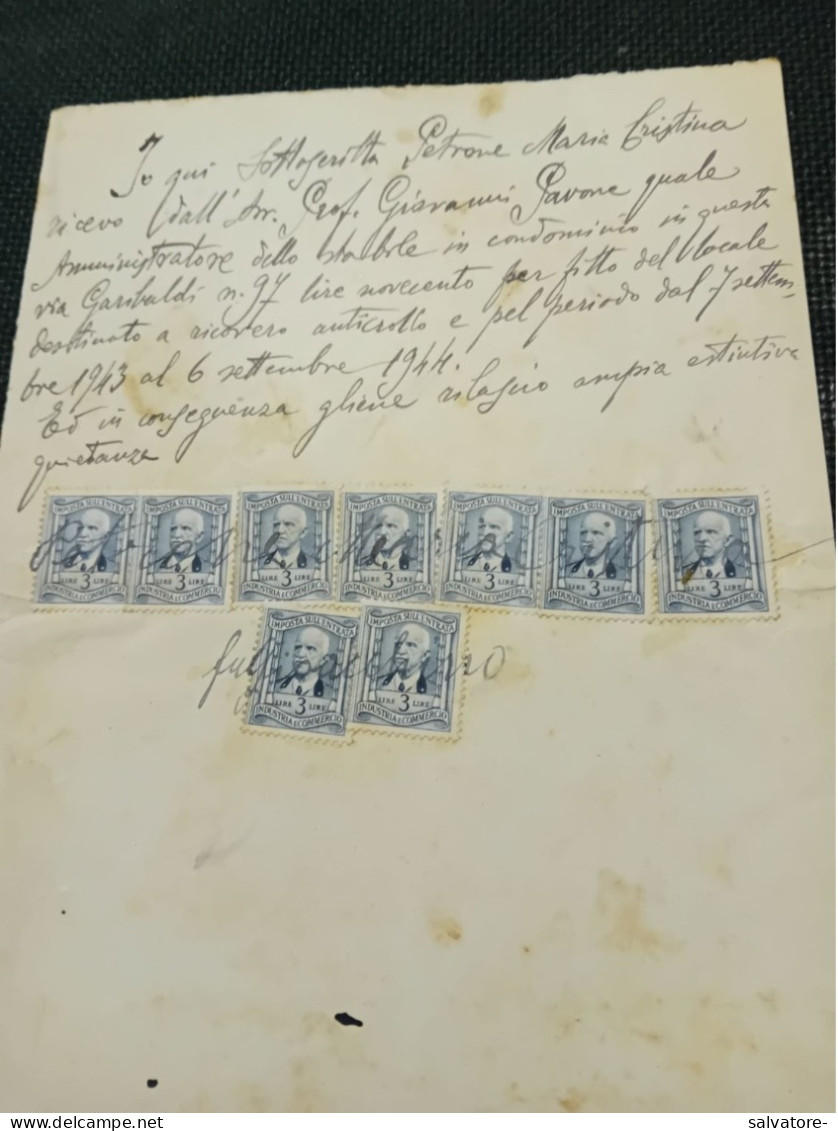 Io qui sottoscritta Petrone Maria Cristina
ricevo dall'Avv. Prof. Giovanni Pavone quale
Amministratore dello stabile in condominio in questa
via Garibaldi n. 97 lire novecento per fitto del locale
destinato a ricovero anticrollo e pel periodo dal 7 settem-
bre 1943 al 6 settembre 1944.
Ed in conseguenza gliene rilascio ampia estintiva
quietanza
IMPOSTA SULL'ENTRATA IMPOSTA SULL'ENTRATA IMPOSTA SULL'ENTRATA IMPOSTA SULL'ENTRATA IMPOSTA SULL'ENTRATA IMPOSTA SULL'ENTRATA IMPOSTA SULL'ENTRATA
Maria Cristina
LIRE 3 LIRE LIRE 3 LIRE LIRE 3 LIRE LIRE 3 LIRE LIRE 3 LIRE LIRE 3 LIRE LIRE 3 LIRE
INDUSTRIA E COMMERCIO INDUSTRIA E COMMERCIO INDUSTRIA E COMMERCIO INDUSTRIA E COMMERCIO INDUSTRIA E COMMERCIO INDUSTRIA E COMMERCIO INDUSTRIA E COMMERCIO
IMPOSTA SULL'ENTRATA IMPOSTA SULL'ENTRATA
LIRE 3 LIRE LIRE 3 LIRE
INDUSTRIA E COMMERCIO INDUSTRIA E COMMERCIO
salvatore-